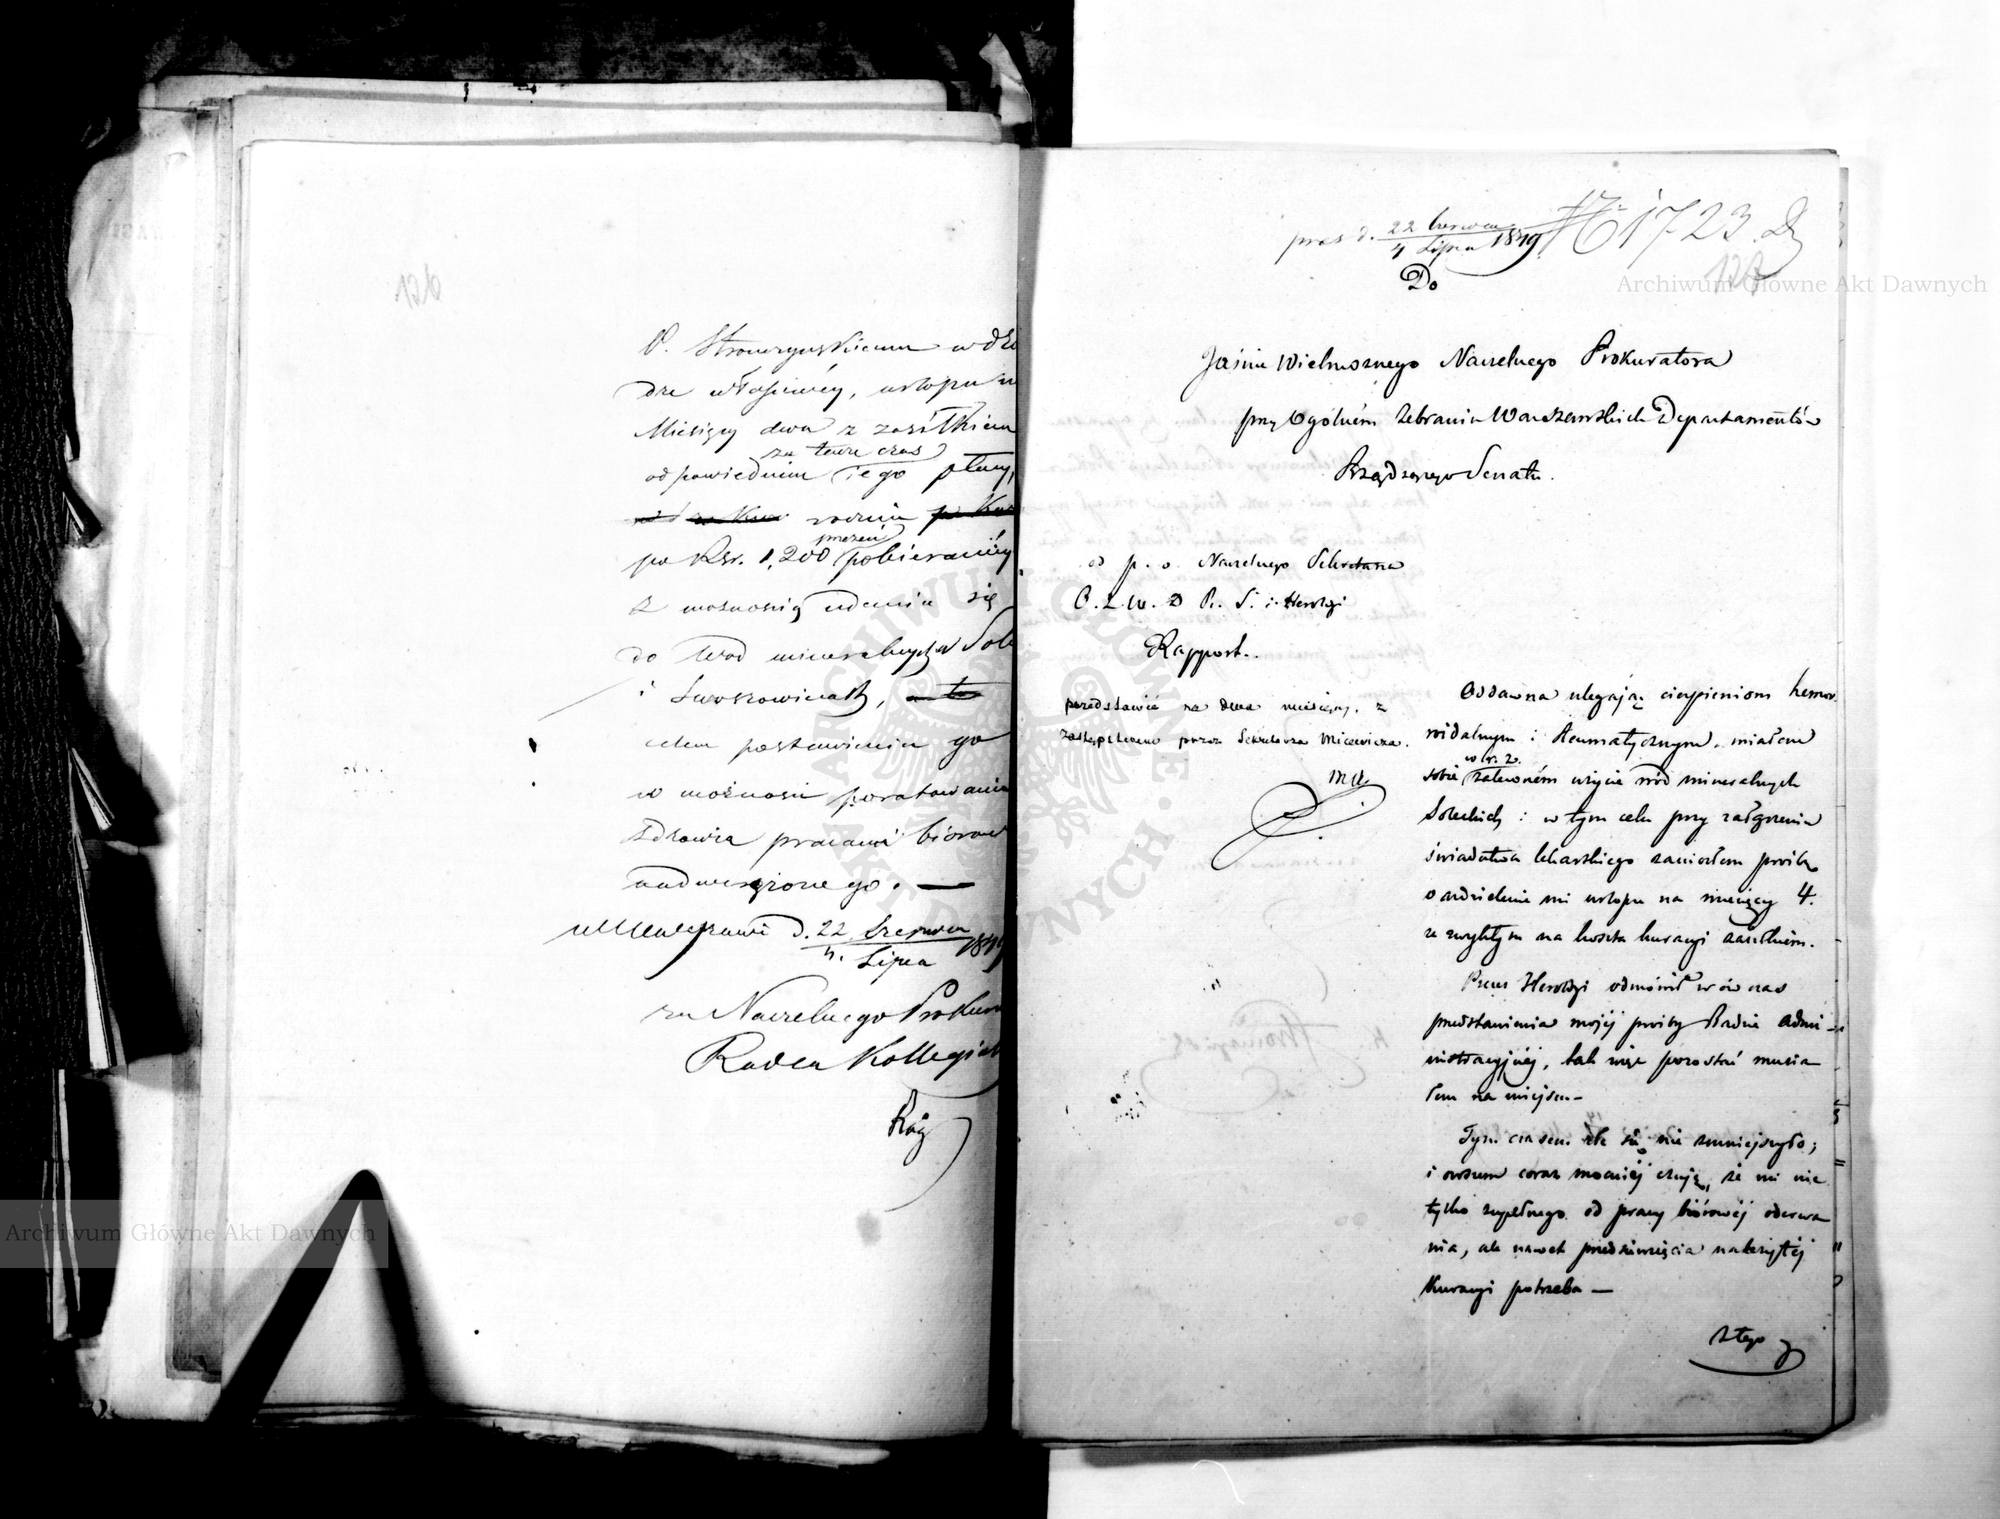 P. Stronczyńskiemu w dro
dze właściwéj, urlopu na
Miesięcy dwa z zasiłkiem
za tenże czas
odpowiednim jego płacy,
rocznie
przezeń
po Rsr. 1,200 pobieranéj
z możnością udania się
do Wód mineralnych w Sol
i Swoszowicach,
celem postawienia go
w możności poratowania
zdrowia pracami biorow
nadwerężonego. —
w Warszawie d. 22 Czerwca
4. Lipca 1849
za Naczelnego Prokura
Radca Kollegial
pras d. 22 Czerwca
4 Lipca 1849 № 1723
Do
Jaśnie Wielmożnego Naczelnego Prokuratora
przy Ogólném Zebraniu Warszawskich Departamentów
Rządzącego Senatu.
od p. o. Naczelnego Sekretarza
O. Z. W. D R. S. i Heroldyi
Rapport.
przedstawić na dwa miesięcy, z
zastępstwem przez Sekretarza Micewicza.
Oddawna ulegając cierpieniom hemor-
roidalnym i Reumatycznym, miałem
w r. z.
sobie zalecone użycie wód mineralnych
Soleckich i w tym celu przy załączeniu
świadectwa lekarskiego zaniosłem prośbę
o udzielenie mi urlopu na miesięcy 4.
ze zwykłym na koszta kuracyi zasiłkiem.
Prezes Heroldyi odmówił wówczas
przedstawienia mojéj prośby Radzie Admi-
nistracyjnéj, tak więc pozostać musia
łem na miejscu—
Tym czasem złe się nie zmniejszyło;
i owszem coraz mocniéj czuję, że mi nie
tylko zupełnego od pracy biórowéj oderwa
nia, ale nawet przedsięwzięcia należytéj
Kuracyi potrzeba—
Z tego
Archiwum Główne Akt Dawnych
Archiwum Główne Akt Dawnych